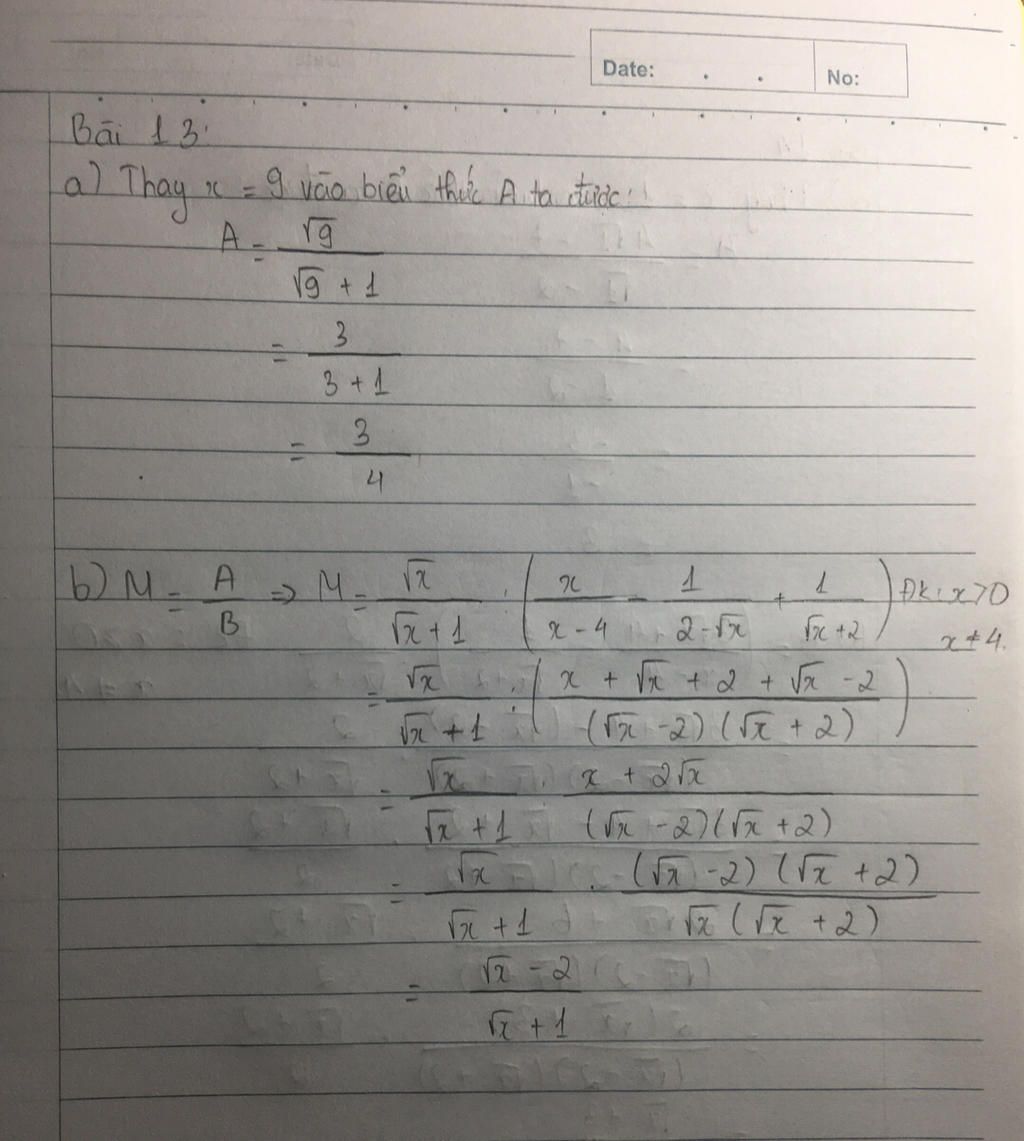 Date: . . No:
Bài 13:
a) Thay x = 9 vào biểu thức A ta được:
A = √9 / (√9 + 1)
= 3 / (3 + 1)
= 3 / 4
b) M = A / B => M = √x / (√x + 1) : ( x / (x - 4) - 1 / (2 - √x) + 1 / (√x + 2) ) Đk: x > 0
x ≠ 4.
= √x / (√x + 1) : ( (x + √x + 2 + √x - 2) / ((√x - 2) (√x + 2)) )
= √x / (√x + 1) : (x + 2√x) / ((√x - 2)(√x + 2))
= √x / (√x + 1) . ((√x - 2) (√x + 2)) / (√x (√x + 2))
= (√x - 2) / (√x + 1)